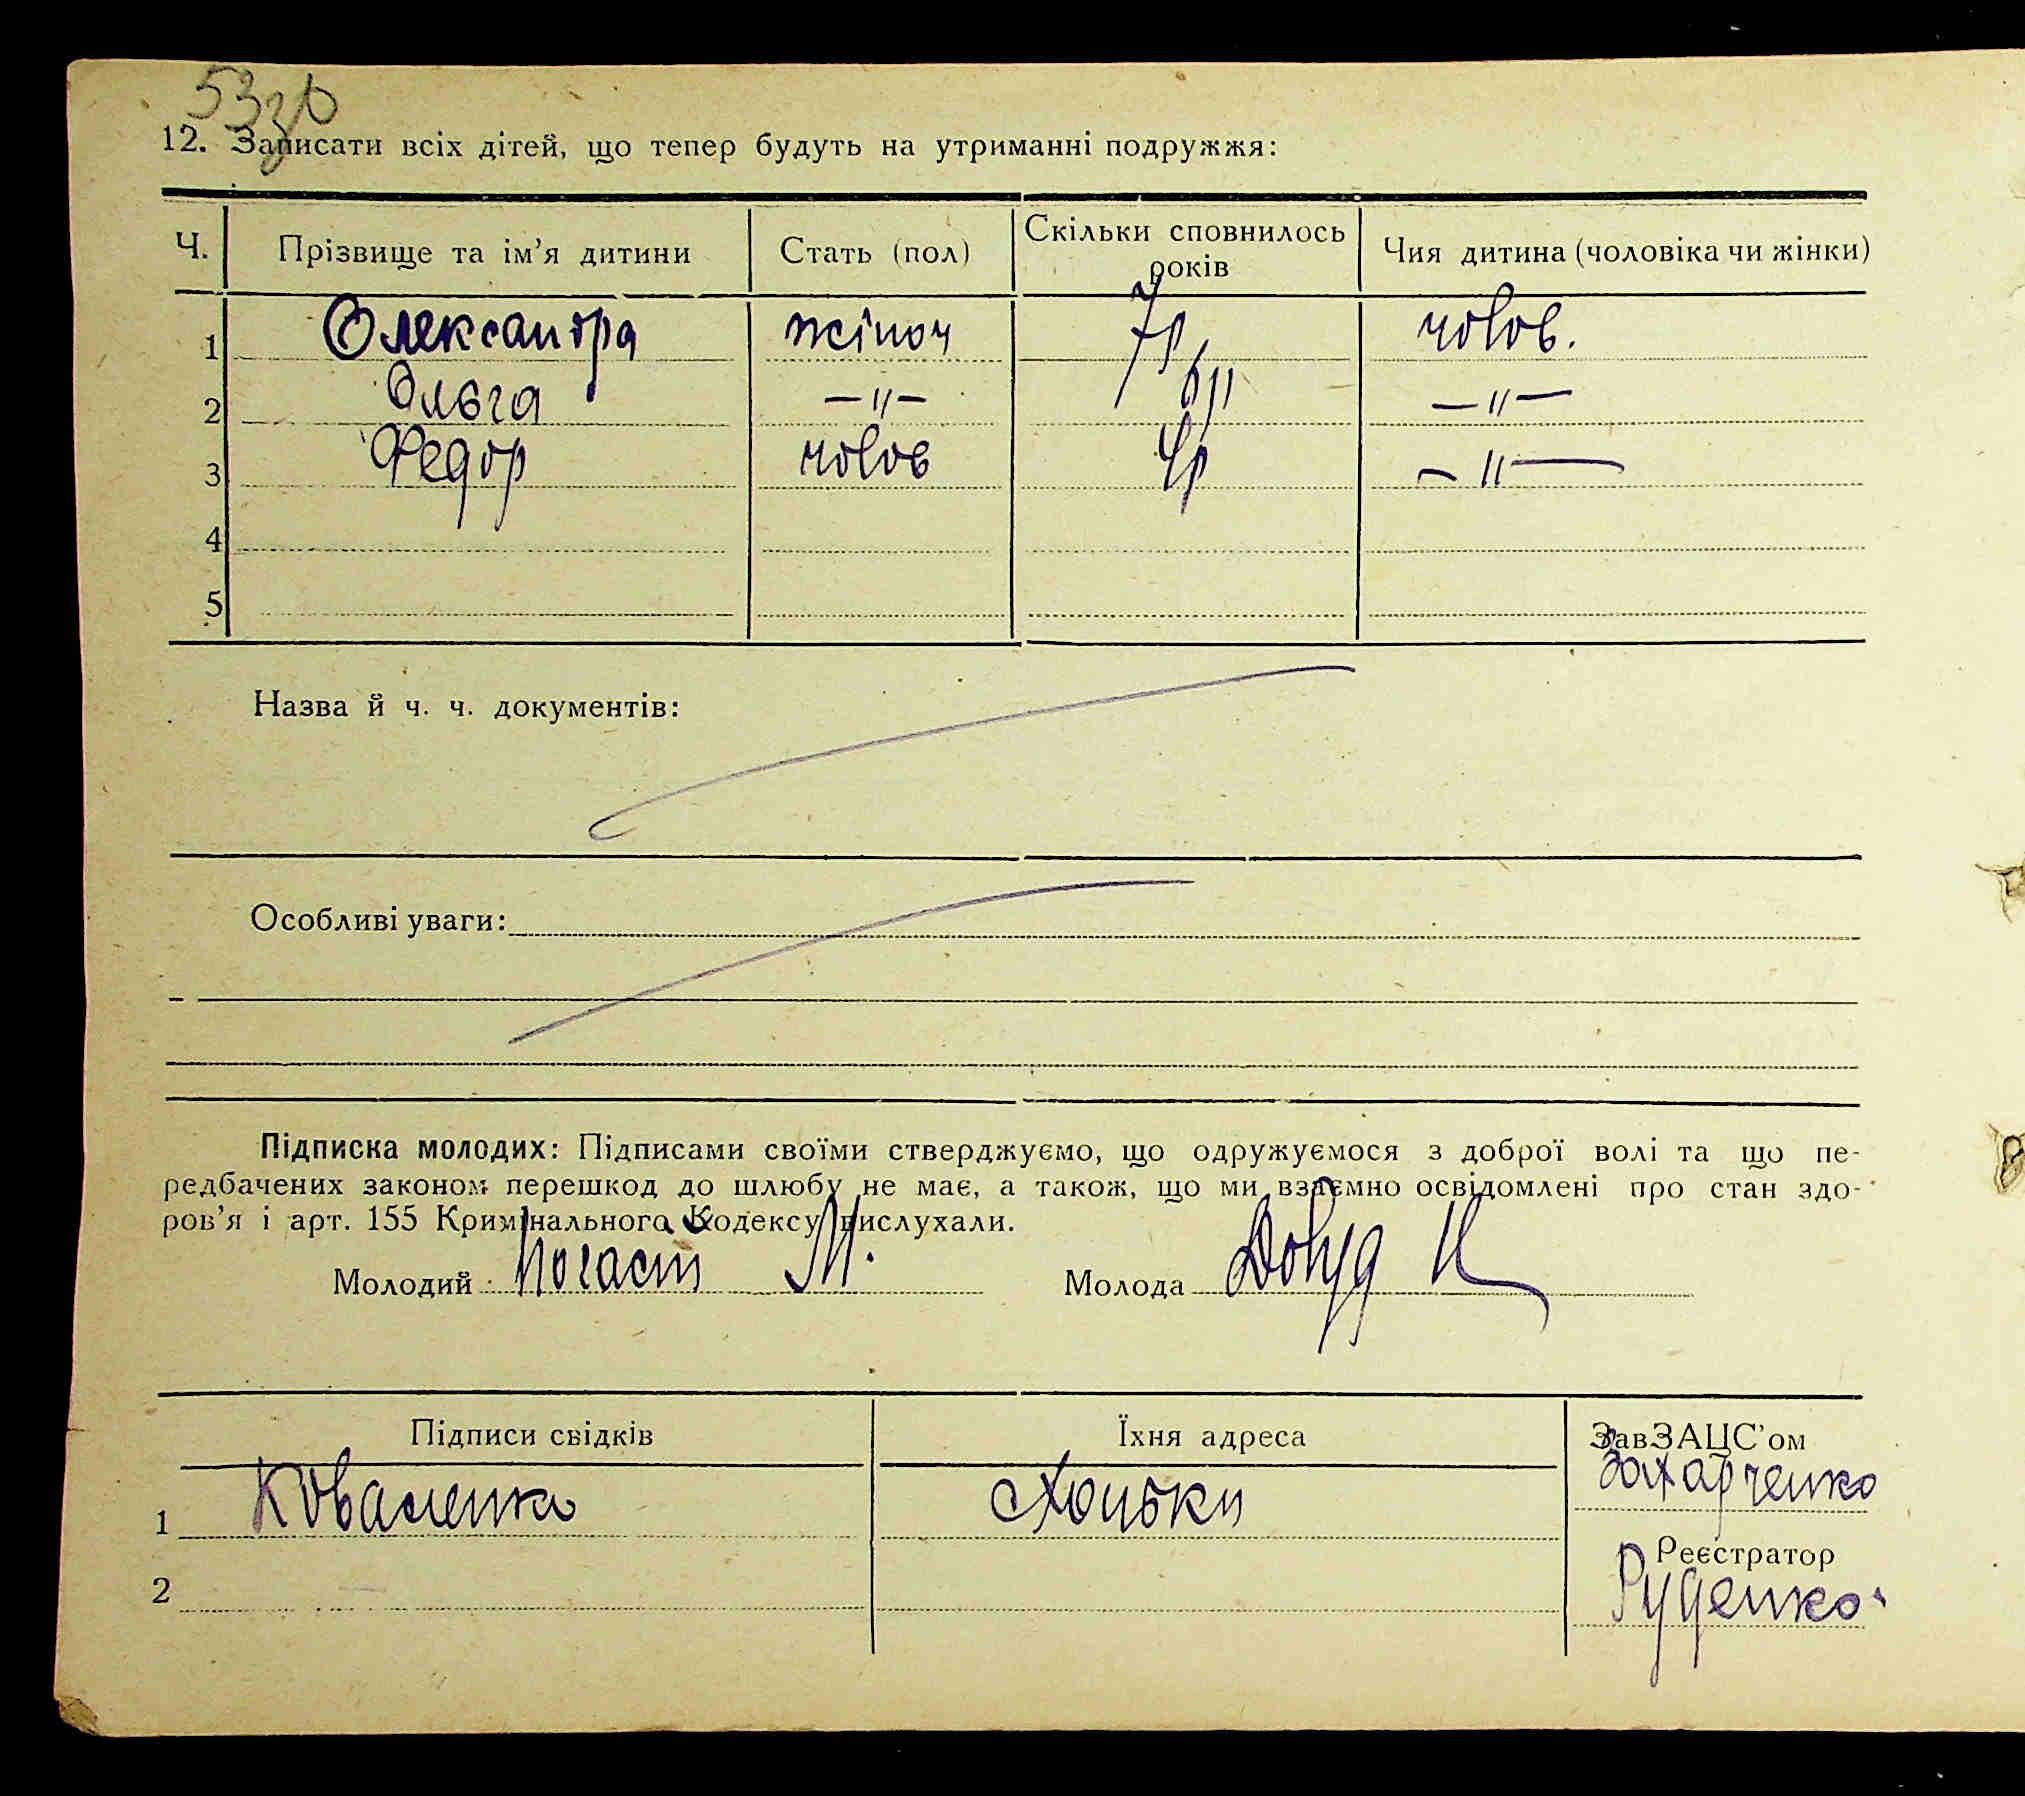 53зв
12. Записати всіх дітей, що тепер будуть на утриманні подружжя:
Ч. Прізвище та ім’я дитини Стать (пол) Скільки сповнилось років Чия дитина (чоловіка чи жінки)
1 Олександра жіноч 7р чолов.
2 Ольга —"— 6р —"—
3 Федор чолов 4р —"—
4
5
Назва й ч. ч. документів:
Особливі уваги:
Підписка молодих: Підписами своїми стверджуємо, що одружуємося з доброї волі та що пе-
редбачених законом перешкод до шлюбу не має, а також, що ми взаємно освідомлені про стан здо-
ров’я і арт. 155 Кримінального Кодексу вислухали.
Молодий М. Молода
Підписи свідків Їхня адреса ЗавЗАЦС’ом
Захарченко
1 Коваленко Хоньки
Реєстратор
2 Руденко